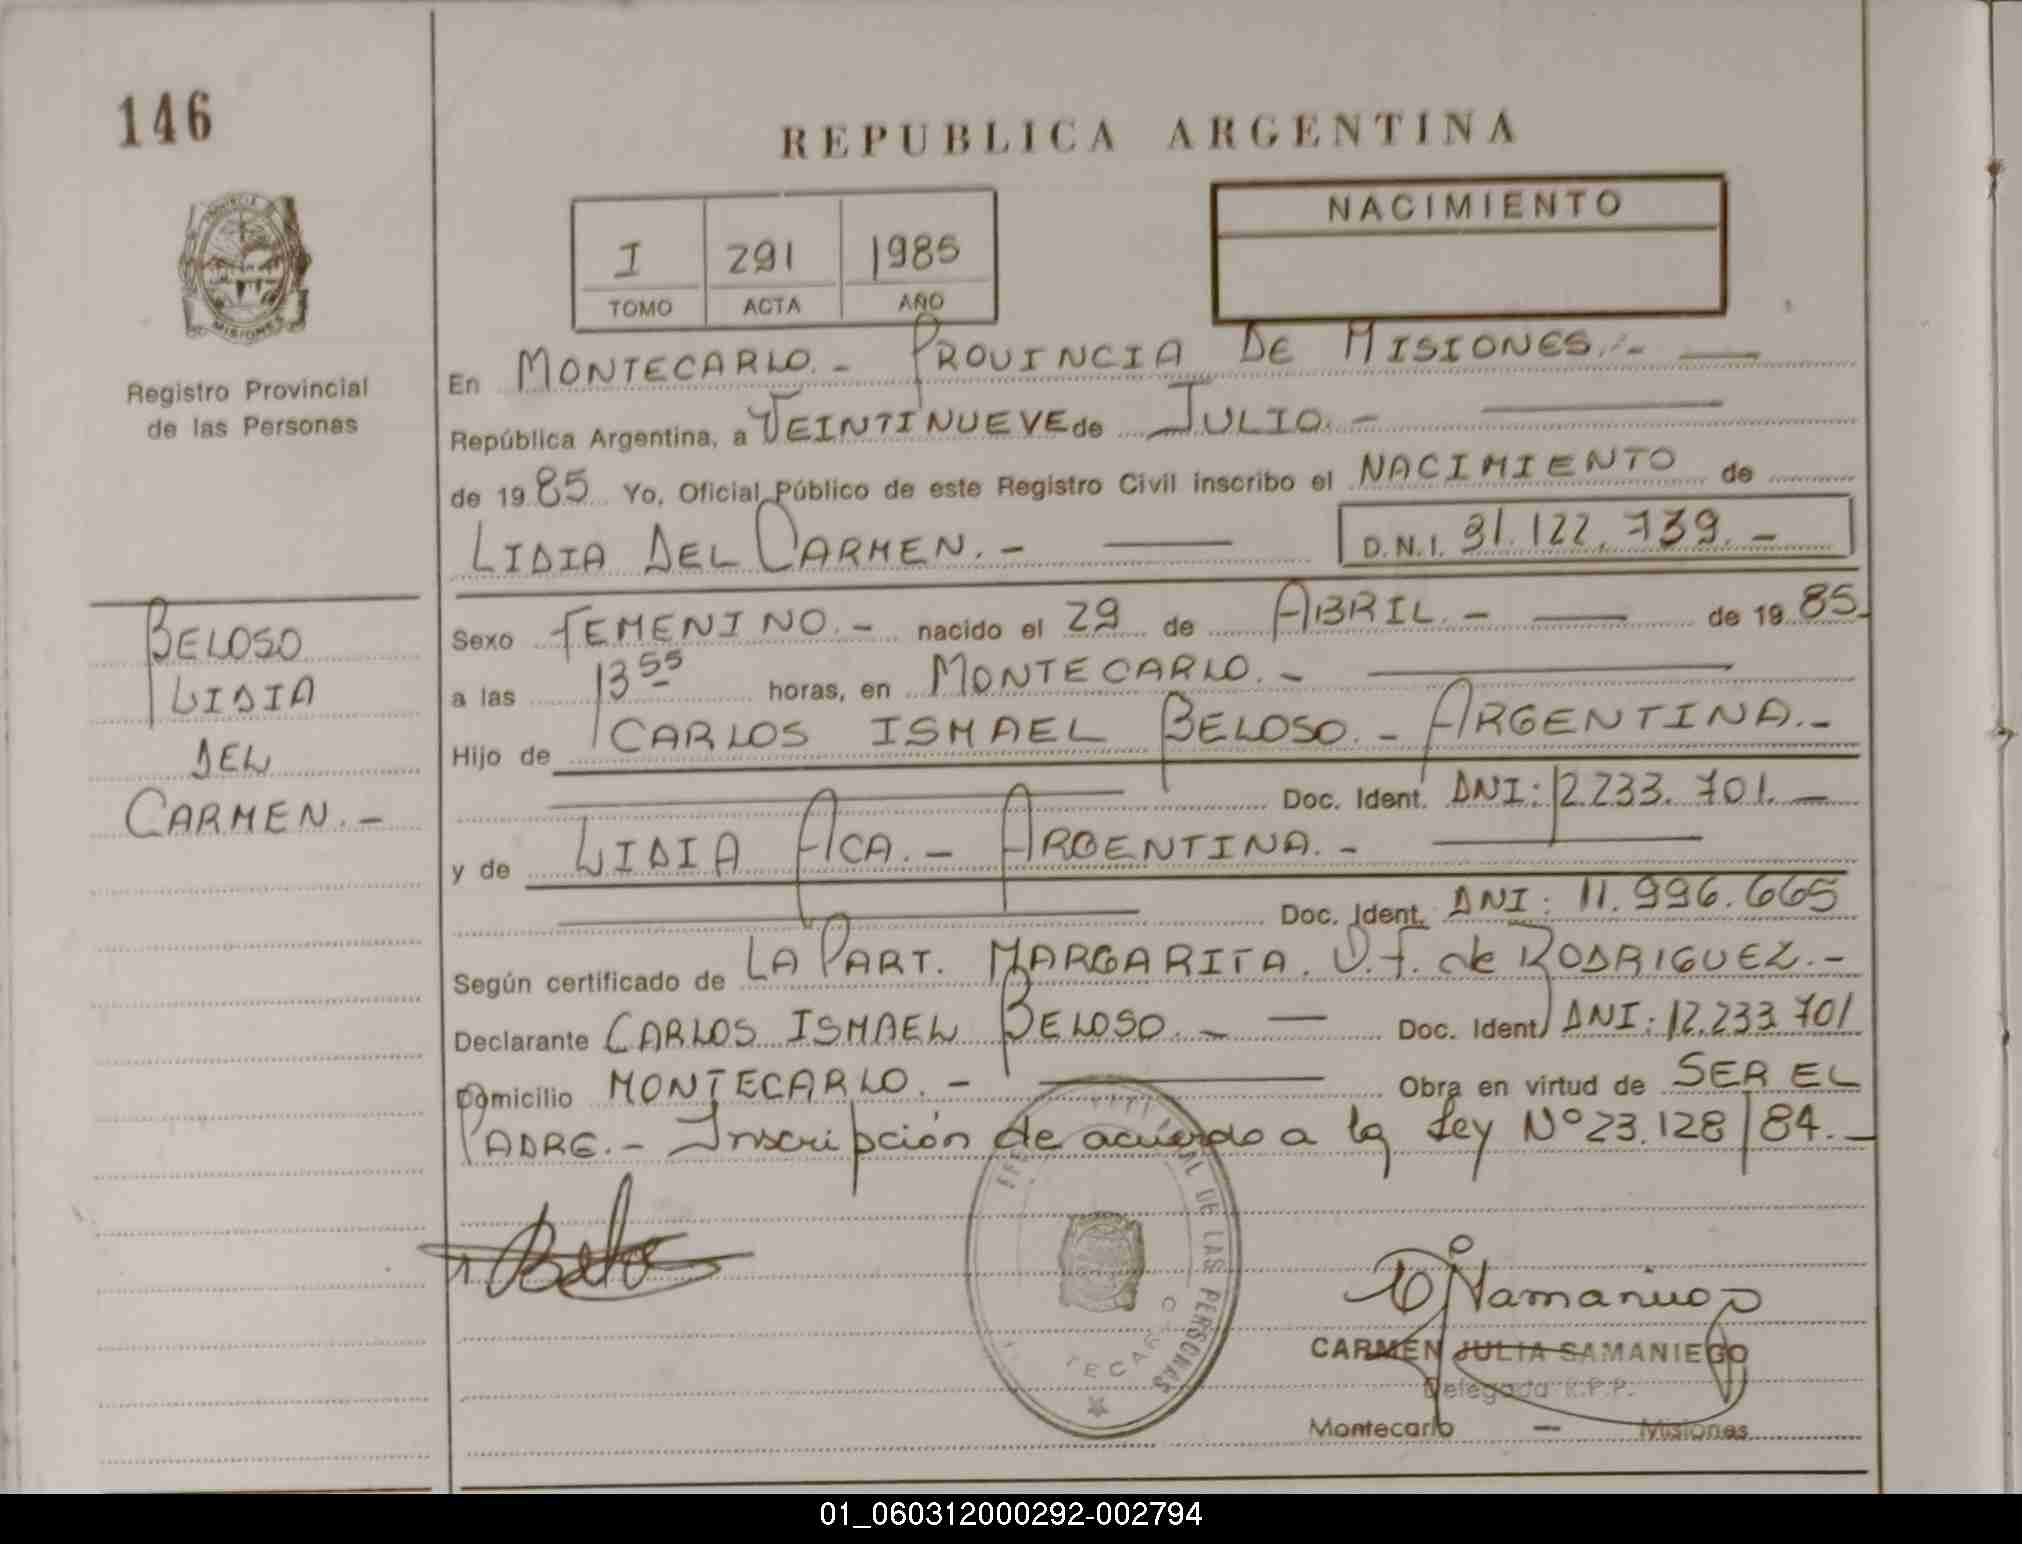 146
REPUBLICA ARGENTINA
PROVINCIA DE
MISIONES
Registro Provincial
de las Personas
I 291 1985
TOMO ACTA AÑO
NACIMIENTO
En MONTECARLO.- PROVINCIA DE MISIONES.-
República Argentina, a VEINTINUEVE de JULIO.-
de 1985 Yo, Oficial Público de este Registro Civil inscribo el NACIMIENTO de
LIDIA DEL CARMEN.- D.N.I. 31.122.739.-
BELOSO
LIDIA
DEL
CARMEN.-
Sexo FEMENINO.- nacido el 29 de ABRIL.- de 1985.
a las 13 55 horas, en MONTECARLO.-
Hijo de CARLOS ISMAEL BELOSO.- ARGENTINA.-
Doc. Ident. DNI: 12.233.701.-
y de LIDIA ACA.- ARGENTINA.-
Doc. Ident. DNI: 11.996.665
Según certificado de LA PART. MARGARITA. D.F. de RODRIGUEZ.-
Declarante CARLOS ISMAEL BELOSO.- Doc. Ident. DNI: 12.233.701
Domicilio MONTECARLO.- Obra en virtud de SER EL
PADRE.- Inscripción de acuerdo a la Ley Nº 23.128/84.-
DE LAS PERSONAS
CARMEN JULIA SAMANIEGO
Delegada R.P.P.
Montecarlo - Misiones
01_060312000292-002794